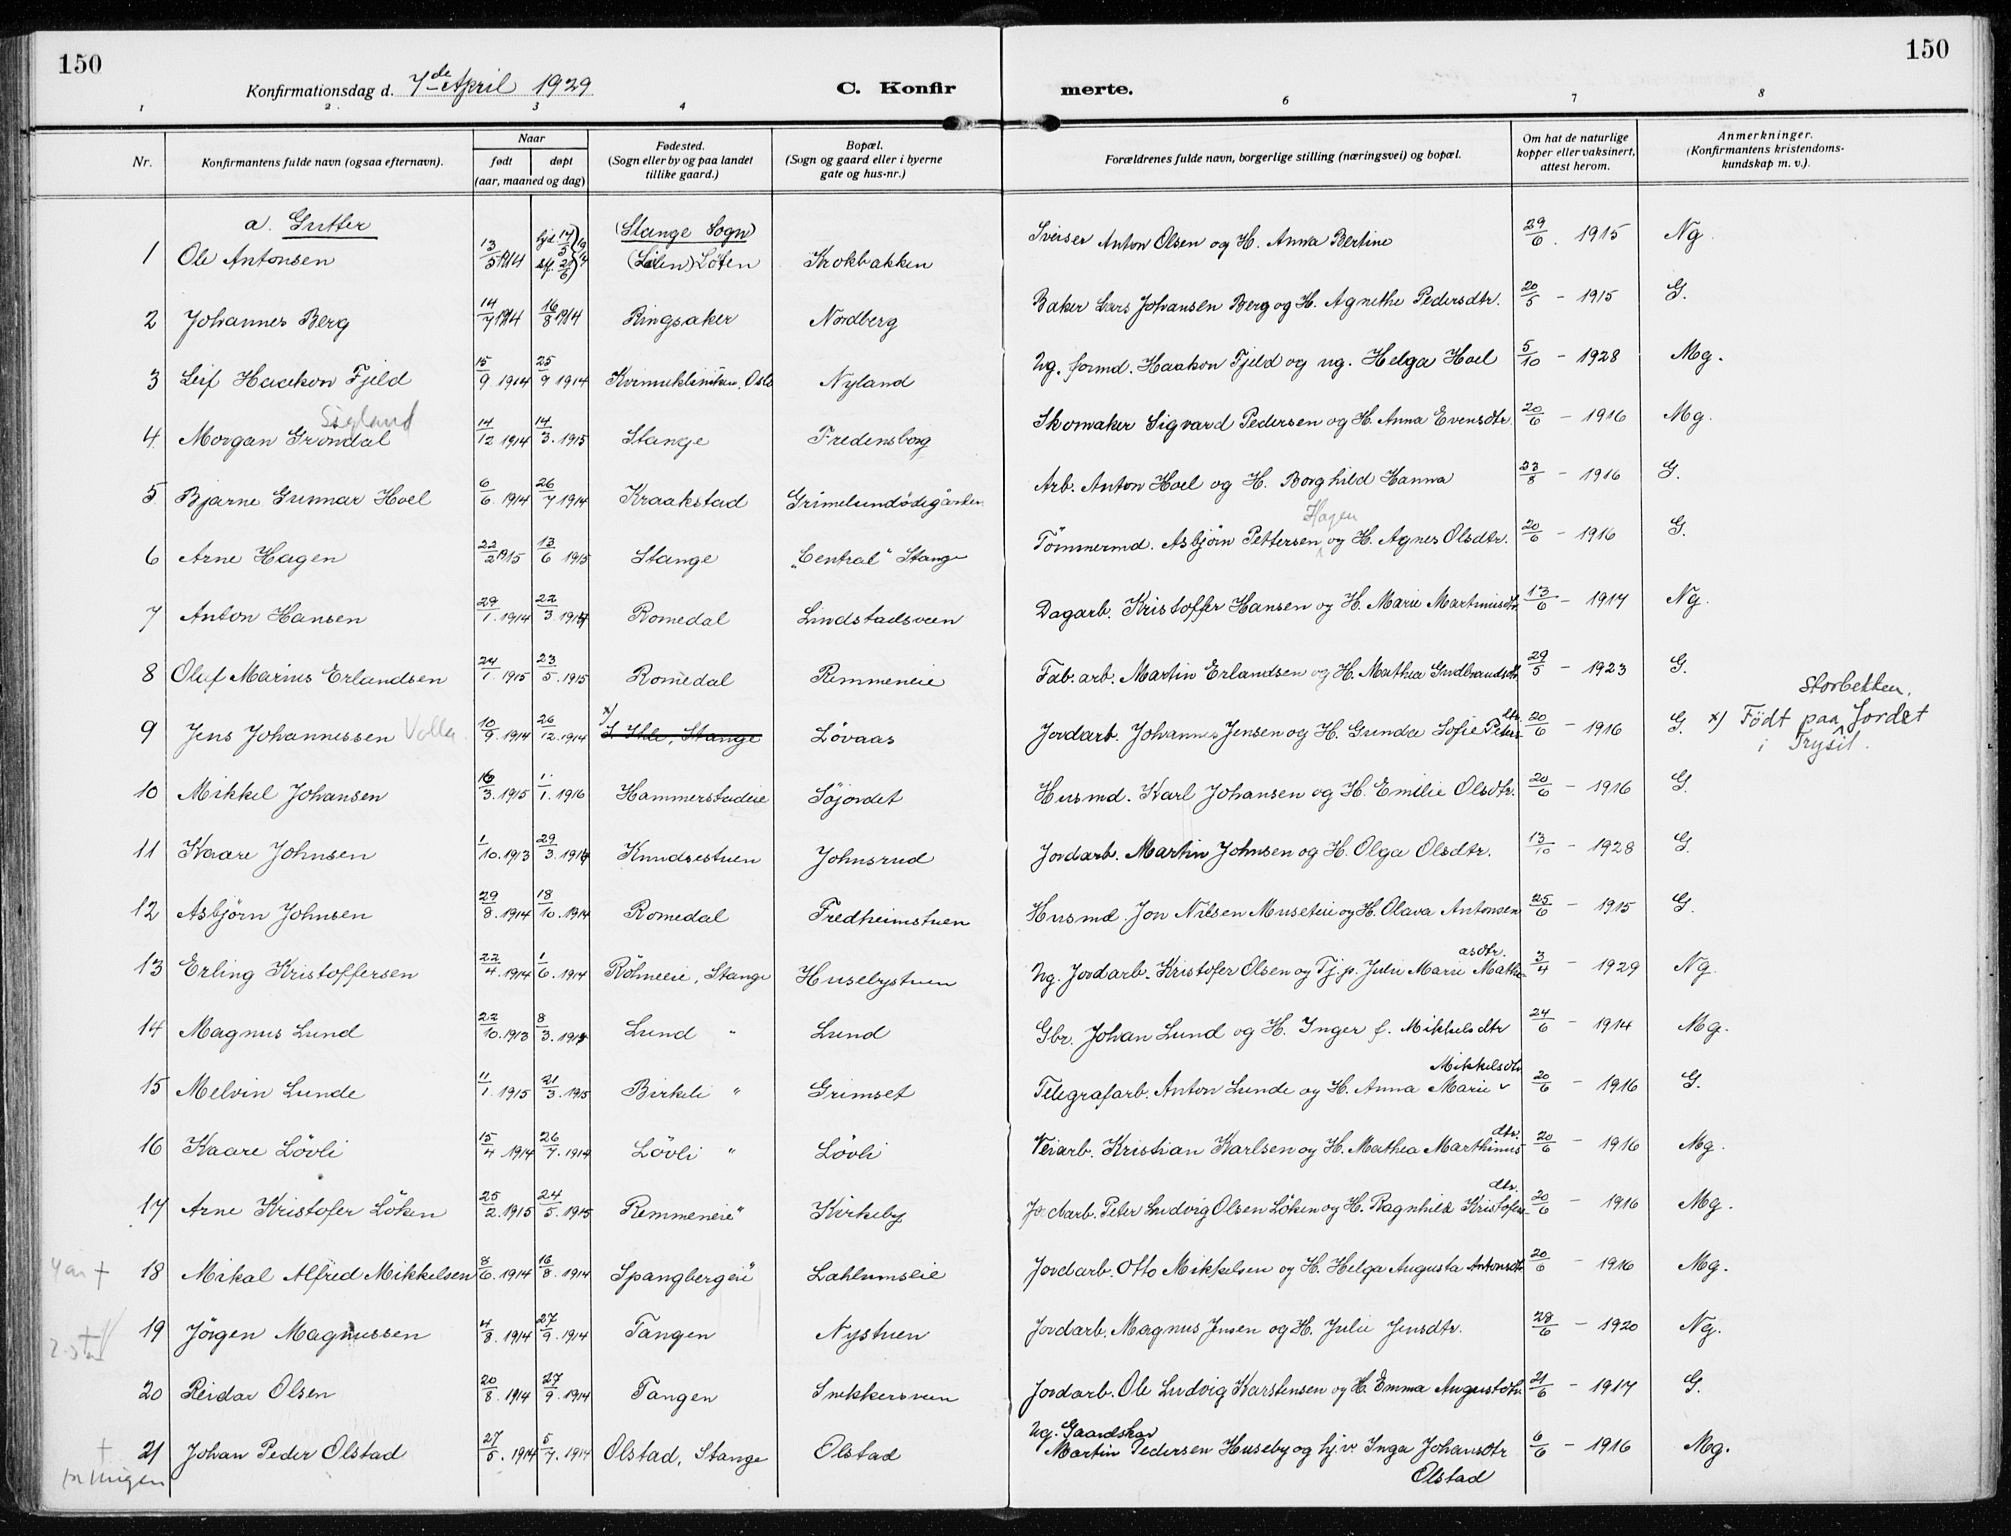 150
150
Konfirmationsdag d. 7de April 1929
C. Konfirmerte.
1 2 3 4 6 7 8
Nr.
Konfirmantens fulde navn (ogsaa efternavn).
Naar
født døpt
(aar, maaned og dag)
Fødested.
(Sogn eller by og paa landet
tillike gaard.)
Bopæl.
(Sogn og gaard eller i byerne
gate og hus-nr.)
Forældrenes fulde navn, borgerlige stilling (næringsvei) og bopæl.
Om hat de naturlige
kopper eller vaksinert,
attest herom.
Anmerkninger.
(Konfirmantens kristendoms-
kundskap m. v.).
a. Gutter (Stange Sogn)
1 Ole Antonsen 13/5 1914 hjd. 14/5 st. 21/6 14 Løten Krokbakken Sveiser Anton Olsen og H. Anna Bertine 29/6 . 1915 Ng.
2 Johannes Berg 14/7 1914 16/8 1914 Ringsaker Nordberg Baker Lars Johansen Berg og H. Agnethe Pedersdtr. 20/5 - 1915 G.
3 Leif Haakon Fjeld 15/9 1914 25/9 1914 Kvinneklinikken, Oslo Nyland Ug. formd. Haakon Fjeld og ug. Helga Hoel 5/10 - 1928 Mg.
Sigland
4 Morgan Gröndal 14/12 1914 14/3. 1915 Stange Fredensborg Skomaker Sigvard Pedersen og H. Anna Evensdtr. 20/6 - 1916 Mg.
5 Bjarne Gunnar Hoel 6/6. 1914 26/7 1914 Kraakstad Grimelundödegården Arb. Anton Hoel og H. Borghild Hanna 23/8 - 1916 G.
Hagen
6 Arne Hagen 22/2 1915 13/6 1915 Stange „Central" Stange Tömmermd. Asbjörn Pettersen og H. Agnes Olsdtr. 20/6 - 1916 G.
7 Anton Hansen 29/1. 1914 22/3. 1914 Romedal Lindstadsveen Dagarb. Kristoffer Hansen og H. Marie Martinusdtr. 13/6 - 1917 Ng.
8 Oluf Marius Erlandsen 24/1. 1915 23/5. 1915 Romedal Remmeneie Fab. arb. Martin Erlandsen og H. Mathea Gudbrandsdtr. 29/5 - 1923 G.
Storbekken.
9 Jens Johannessen Volla 10/9. 1914 26/12. 1914 x) S. Ihle, Stange Lövaas Jordarb. Johannes Jensen og H. Gunda Sofie Petersdtr. 20/6 - 1916 G. x) Født paa Jordet
i Trysil.
10 Mikkel Johansen 16/3. 1915 1/1. 1916 Hammerstadeie Söjordet Husmd. Karl Johansen og H. Emilie Olsdtr. 20/6 - 1916 G.
11 Kaare Johnsen 1/10. 1913 29/3. 1914 Knudsestuen Johnsrud Jordarb. Martin Johnsen og H. Olga Olsdtr. 13/10 - 1928 G.
12 Asbjörn Johnsen 29/8. 1914 18/10. 1914 Romedal Fredheimstuen Husmd. Jon Nilsen Museteie og H. Olava Antonsen 25/6 - 1915 G.
asdtr.
13 Erling Kristoffersen 22/4. 1914 1/6. 1914 Röhneeie, Stange Husebystuen Ug. Jordarb. Kristofer Olsen og Tj.p. Julie Marie Mathi- 3/4 - 1929 Ng.
14 Magnus Lund 22/10. 1913 8/3. 1914 Lund " Lund Gbr. Johan Lund og H. Inger f. Mikkelsdtr 24/6 - 1914 Mg.
Mikkelsdtr
15 Melvin Lunde 11/1. 1915 21/3. 1915 Birkeli " Grimset Telegrafarb. Anton Lunde og H. Anna Marie 20/6 - 1916 G.
dtr.
16 Kaare Lövli 15/4. 1914 26/7. 1914 Lövli " Lövli Veiarb. Kristian Karlsen og H. Mathea Marthinus- 20/6 - 1916 Mg.
dtr.
17 Arne Kristofer Löken 25/2. 1915 24/5. 1915 Remmeneie " Kirkeby Jordarb. Peter Ludvig Olsen Löken og H. Ragnhild Kristofers- 20/6 - 1916 Mg.
18 Mikal Alfred Mikkelsen 8/6. 1914 16/8. 1914 Spangbergeie " Lahlumseie Jordarb. Otto Mikkelsen og H. Helga Augusta Antonsdtr 20/6 - 1916 Mg.
19 Jörgen Magnussen 4/8. 1914 27/9. 1914 Tangen Nystuen Jordarb. Magnus Jensen og H. Julie Jensdtr. 28/6 - 1920 Ng.
20 Reidar Olsen 20/8. 1914 27/9. 1914 Tangen Snekkersveen Jordarb. Ole Ludvig Karstensen og H. Emma Augustdtr. 21/6 - 1917 G.
Ug. Gaardskar
21 Johan Peder Olstad 27/5. 1914 5/7. 1914 Olstad, Stange Olstad Martin Pedersen Huseby og hj.v. Inga Johansdtr 6/6 - 1916 Mg.
Olstad